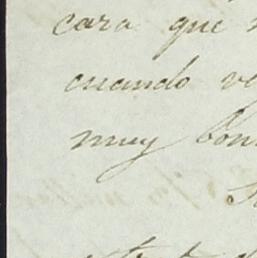 cara que
cuando ve
muy bon